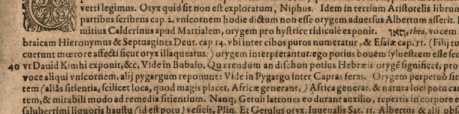 verti legimus. Oryx quid sit non est exploratum, Niphus. Idem in tertium Aristotelis librum
partibus scribens cap. 2. vnicornem hodie dictum non esse orygem aduersus Albertum asserit.
mitius Calderinus apud Martialem, orygem pro hystrice ridiculè exponit. theo, vocem
braicam Hieronymus & Septuaginta Deut. cap. 14. vbi inter cibos puros numeratur, & Esaiæ cap. (filij tui
cuerunt mœrore affecti sicut oryx illaqueatus) orygem interpretantur. ergo potius bouem syluestrem esse
40 vt Dauid Kimhi exponit, &c. Vide in Bubalo. Quærendum an dischon potius Hebræis orygē significet, pro
voce aliqui vnicornem, alij pygargum reponunt: Vide in Pygargo inter Capras feras. Oryx perpetuò
tem (aliâs sitientia, scilicet loca, quod magis placet, Africæ generat,) Africa generat: & natura loci potu
tem, & mirabili modo ad remedia sitientium. Nanq; Getuli latrones eo durant auxilio, repertis in corpore
saluberrimi liquoris haustu (id est potu) vesicis, Plin. Et Getulus oryx, Iuuenalis Sat. 11. Albertus & alij